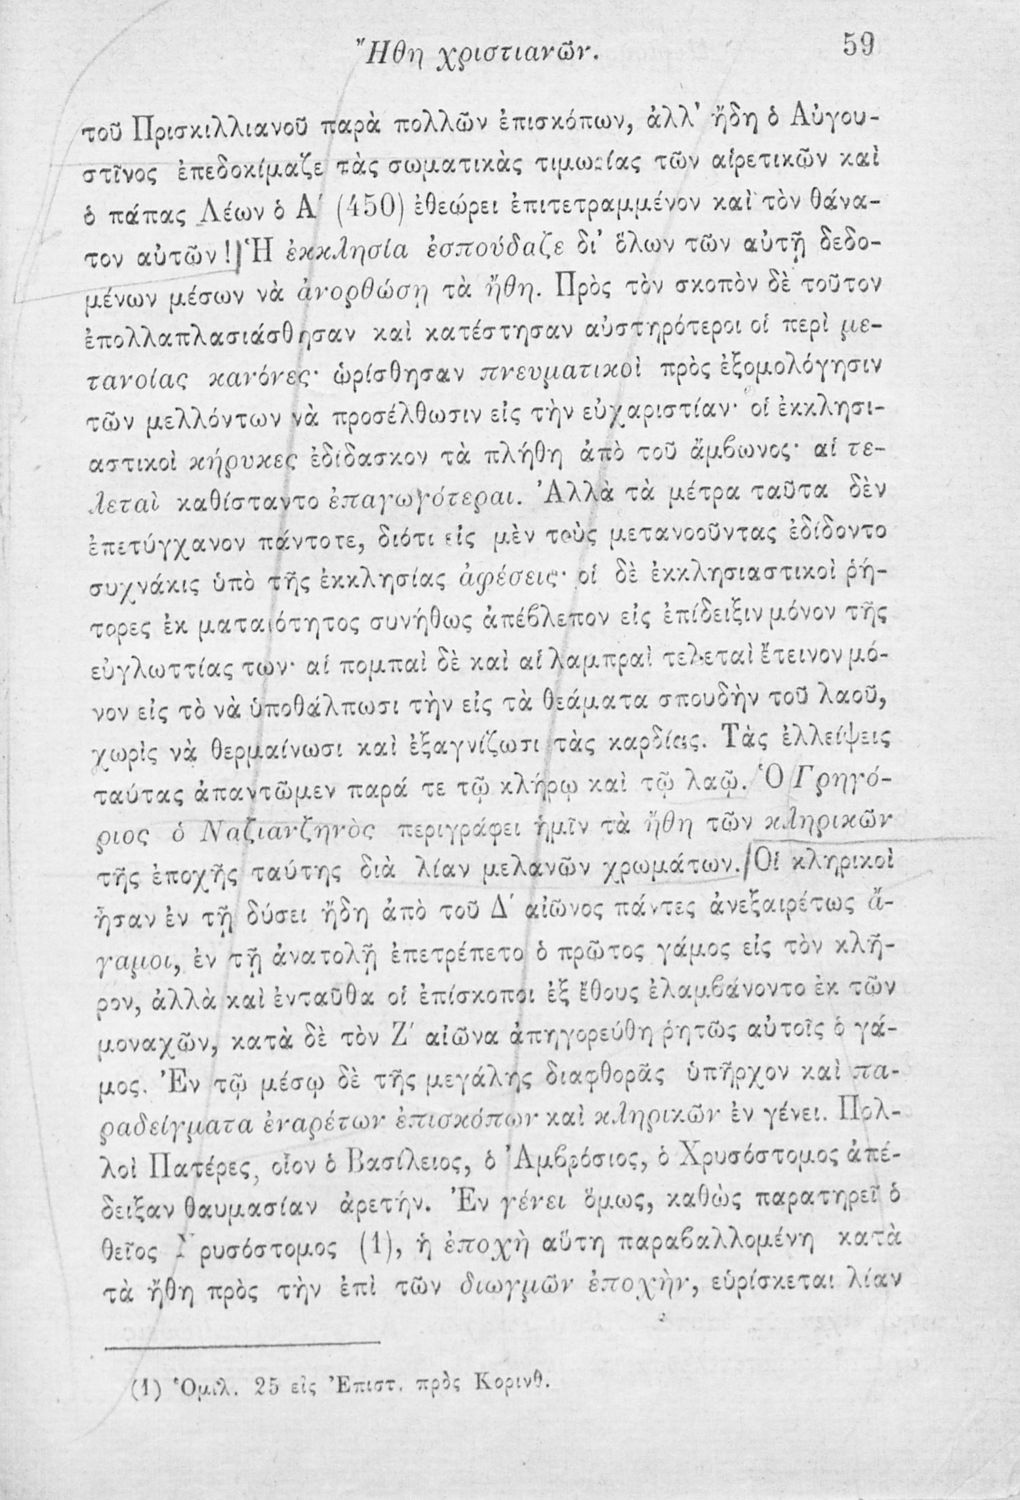 Ἤθη χριστιανῶν. 59
τοῦ Πρισκιλλιανοῦ παρὰ πολλῶν ἐπισκόπων, ἀλλ' ἤδη ὁ Αὐγου-
στῖνος ἐπεδοκίμαζε τὰς σωματικὰς τιμωρίας τῶν αἱρετικῶν καὶ
ὁ πάπας Λέων ὁ Α΄ (450) ἐθεώρει ἐπιτετραμμένον καὶ τὸν θάνα-
τον αὐτῶν! Ἡ ἐκκλησία ἐσπούδαζε δι' ὅλων τῶν αὐτῇ δεδο-
μένων μέσων νὰ ἀνορθώσῃ τὰ ἤθη. Πρὸς τὸν σκοπὸν δὲ τοῦτον
ἐπολλαπλασιάσθησαν καὶ κατέστησαν αὐστηρότεροι οἱ περὶ με-
τανοίας κανόνες· ὡρίσθησαν πνευματικοὶ πρὸς ἐξομολόγησιν
τῶν μελλόντων νὰ προσέλθωσιν εἰς τὴν εὐχαριστίαν· οἱ ἐκκλησι-
αστικοὶ κήρυκες ἐδίδασκον τὰ πλήθη ἀπὸ τοῦ ἄμβωνος· αἱ τε-
λεταὶ καθίσταντο ἐπαγωγότεραι. Ἀλλὰ τὰ μέτρα ταῦτα δὲν
ἐπετύγχανον πάντοτε, διότι εἰς μὲν τοὺς μετανοοῦντας ἐδίδοντο
συχνάκις ὑπὸ τῆς ἐκκλησίας ἀφέσεις· οἱ δὲ ἐκκλησιαστικοὶ ῥή-
τορες ἐκ ματαιότητος συνήθως ἀπέβλεπον εἰς ἐπίδειξιν μόνον τῆς
εὐγλωττίας των· αἱ πομπαὶ δὲ καὶ αἱ λαμπραὶ τελεταὶ ἔτεινον μό-
νον εἰς τὸ νὰ ὑποθάλπωσι τὴν εἰς τὰ θεάματα σπουδὴν τοῦ λαοῦ,
χωρὶς νὰ θερμαίνωσι καὶ ἐξαγνίζωσι τὰς καρδίας. Τὰς ἐλλείψεις
ταύτας ἀπαντῶμεν παρά τε τῷ κλήρῳ καὶ τῷ λαῷ. Ὁ Γρηγό-
ριος ὁ Ναζιανζηνὸς περιγράφει ἡμῖν τὰ ἤθη τῶν κληρικῶν
τῆς ἐποχῆς ταύτης διὰ λίαν μελανῶν χρωμάτων. Οἱ κληρικοὶ
ἦσαν ἐν τῇ δύσει ἤδη ἀπὸ τοῦ Δ΄ αἰῶνος πάντες ἀνεξαιρέτως ἄ-
γαμοι, ἐν τῇ ἀνατολῇ ἐπετρέπετο ὁ πρῶτος γάμος εἰς τὸν κλῆ-
ρον, ἀλλὰ καὶ ἐνταῦθα οἱ ἐπίσκοποι ἐξ ἔθους ἐλαμβάνοντο ἐκ τῶν
μοναχῶν, κατὰ δὲ τὸν Ζ΄ αἰῶνα ἀπηγορεύθη ῥητῶς αὐτοῖς ὁ γά-
μος. Ἐν τῷ μέσῳ δὲ τῆς μεγάλης διαφθορᾶς ὑπῆρχον καὶ πα-
ραδείγματα ἐναρέτων ἐπισκόπων καὶ κληρικῶν ἐν γένει. Πολ-
λοὶ Πατέρες, οἷον ὁ Βασίλειος, ὁ Ἀμβρόσιος, ὁ Χρυσόστομος ἀπέ-
δειξαν θαυμασίαν ἀρετήν. Ἐν γένει ὅμως, καθὼς παρατηρεῖ ὁ
θεῖος Χρυσόστομος (1), ἡ ἐποχὴ αὕτη παραβαλλομένη κατὰ
τὰ ἤθη πρὸς τὴν ἐπὶ τῶν διωγμῶν ἐποχήν, εὑρίσκεται λίαν
(1) Ὁμιλ. 25 εἰς Ἐπιστ. πρὸς Κορινθ.